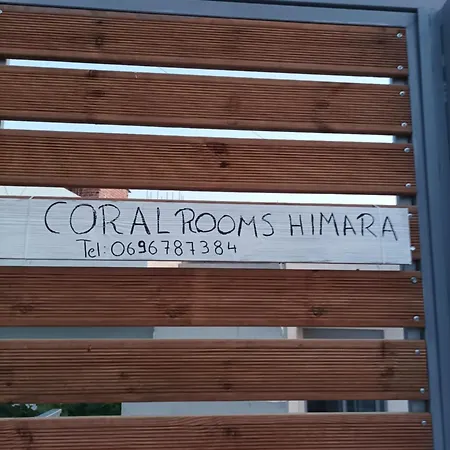 CORAL ROOMS HIMARA
Tel: 0696787384